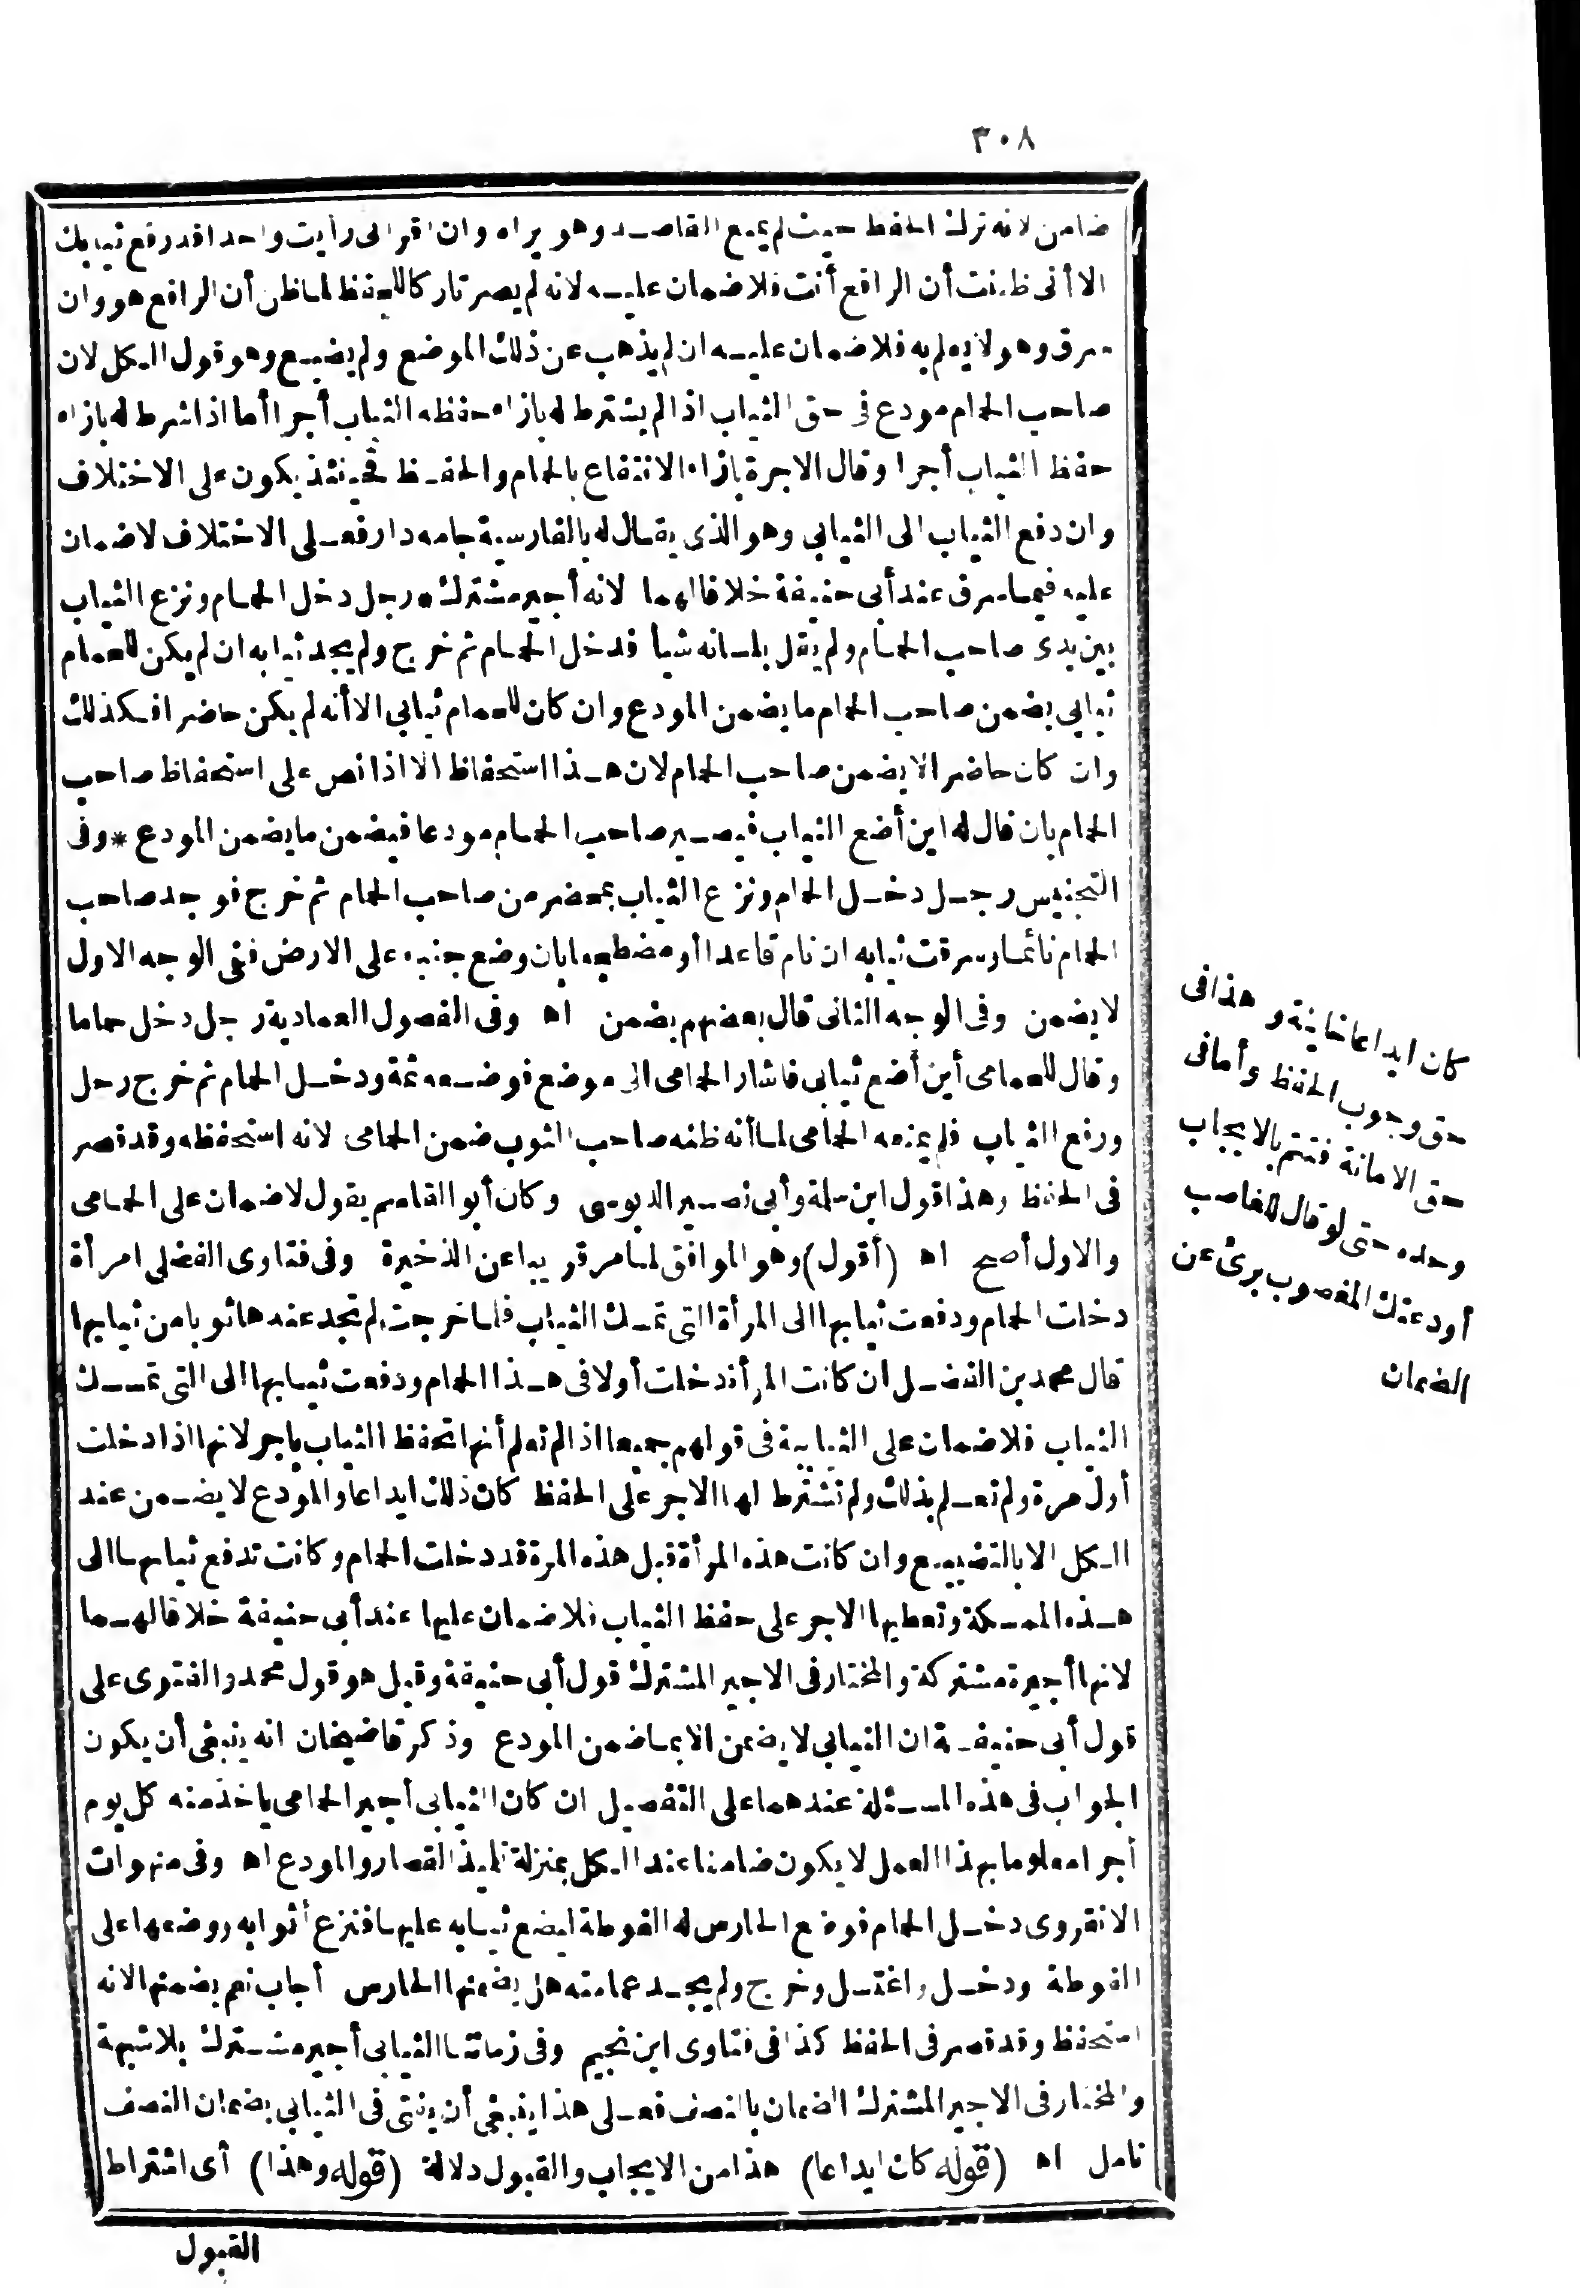 ٣٠٨
ضامن لانه ترك الحفظ حيث لم يمنع القاصد وهو يراه وان اقر انى رأيت واحدا قد رفع ثيابك
الا أنى ظننت أن الرافع أنت فلا ضمان عليه لانه لم يصر تاركا للحفظ لما ظن أن الرافع هو وان
سرق وهو لا يعلم به فلا ضمان عليه ان لم يذهب عن ذلك الموضع ولم يضيع وهو قول الكل لان
صاحب الحمام مودع فى حق الثياب اذا لم يشترط له بازاء حفظه الثياب أجرا أما اذا شرط له بازاء
حفظ الثياب أجرا وقال الاجرة بازاء الانتفاع بالحمام والحفظ فحينئذ يكون على الاختلاف
وان دفع الثياب الى الثيابى وهو الذى يقال له بالفارسية جامه دار فعلى الاختلاف لا ضمان
عليه فيما سرق عند أبى حنيفة خلافا لهما لانه أجير مشترك * رجل دخل الحمام ونزع الثياب
بين يدى صاحب الحمام ولم يقل بلسانه شيأ فدخل الحمام ثم خرج ولم يجد ثيابه ان لم يكن للحمام
ثيابى يضمن صاحب الحمام ما يضمن المودع وان كان للحمام ثيابى الا أنه لم يكن حاضرا فكذلك
وان كان حاضرا لا يضمن صاحب الحمام لان هذا استحفاظ الا اذا نص على استحفاظ صاحب
الحمام بان قال له اين أضع الثياب فيصير صاحب الحمام مودعا فيضمن ما يضمن المودع * وفى
التجنيس رجل دخل الحمام ونزع الثياب بمحضر من صاحب الحمام ثم خرج فوجد صاحب
الحمام نائما وسرقت ثيابه ان نام قاعدا أو مضطجعا بان وضع جنبه على الارض ففى الوجه الاول
لا يضمن وفى الوجه الثانى قال بعضهم يضمن اه وفى الفصول العمادية رجل دخل حماما
وقال للحمامى أين أضع ثيابى فاشار الحمامى الى موضع فوضعه ثمة ودخل الحمام ثم خرج رجل
ورفع الثياب فلم يمنعه الحمامى لما أنه ظنه صاحب الثوب ضمن الحمامى لانه استحفظه وقد قصر
فى الحفظ وهذا قول ابن سلمة وأبى نصير الدبوسى وكان أبو القاسم يقول لا ضمان على الحمامى
والاول أصح اه (أقول) وهو الموافق لما مر قريبا عن الذخيرة وفى فتاوى الفضلى امرأة
دخلت الحمام ودفعت ثيابها الى المرأة التى تمسك الثياب فلما خرجت لم تجد عندها ثوبا من ثيابها
قال محمد بن الفضل ان كانت المرأة دخلت أولا فى هذا الحمام ودفعت ثيابها الى التى تمسك
الثياب فلا ضمان على الثيابية فى قولهم جميعا اذا لم تعلم أنها تحفظ الثياب باجر لانها اذا دخلت
أول مرة ولم تعلم بذلك ولم تشترط لها الاجر على الحفظ كان ذلك ايداعا والمودع لا يضمن عند
الكل الا بالتضييع وان كانت هذه المرأة قبل هذه المرة قد دخلت الحمام وكانت تدفع ثيابها الى
هذه الممسكة وتعطيها الاجر على حفظ الثياب فلا ضمان عليها عند أبى حنيفة خلافا لهما
لانها أجيرة مشتركة والمختار فى الاجير المشترك قول أبى حنيفة وقيل هو قول محمد والفتوى على
قول أبى حنيفة ان الثيابى لا يضمن الا بما ضمن المودع وذكر قاضيخان انه ينبغى أن يكون
الجواب فى هذه المسئلة عندهما على التفصيل ان كان الثيابى أجير الحمامى يأخذ منه كل يوم
أجرا معلوما بهذا العمل لا يكون ضامنا عند الكل بمنزلة تلميذ القصار والمودع اه وفى منهوات
الانقروى دخل الحمام فوضع الحارس له الفوطة ليضع ثيابه عليها فنزع أثوابه ووضعها على
الفوطة ودخل واغتسل وخرج ولم يجد عمامته هل يضمنها الحارس أجاب نعم يضمنها لانه
استحفظ وقد قصر فى الحفظ كذا فى فتاوى ابن نجيم وفى زماننا الثيابى أجير مشترك بلا شبهة
والمختار فى الاجير المشترك الضمان بالنصف فعلى هذا ينبغى أن يفتى فى الثيابى بضمان النصف
تامل اه (قوله كان ايداعا) هذا من الايجاب والقبول دلالة (قوله وهذا) أى اشتراط
القبول
كان ايداعا خانية وهذا فى
حق وجوب الحفظ وأما فى
حق الامانة فتتم بالايجاب
وحده حتى لو قال للغاصب
أودعتك المغصوب برئ عن
الضمان